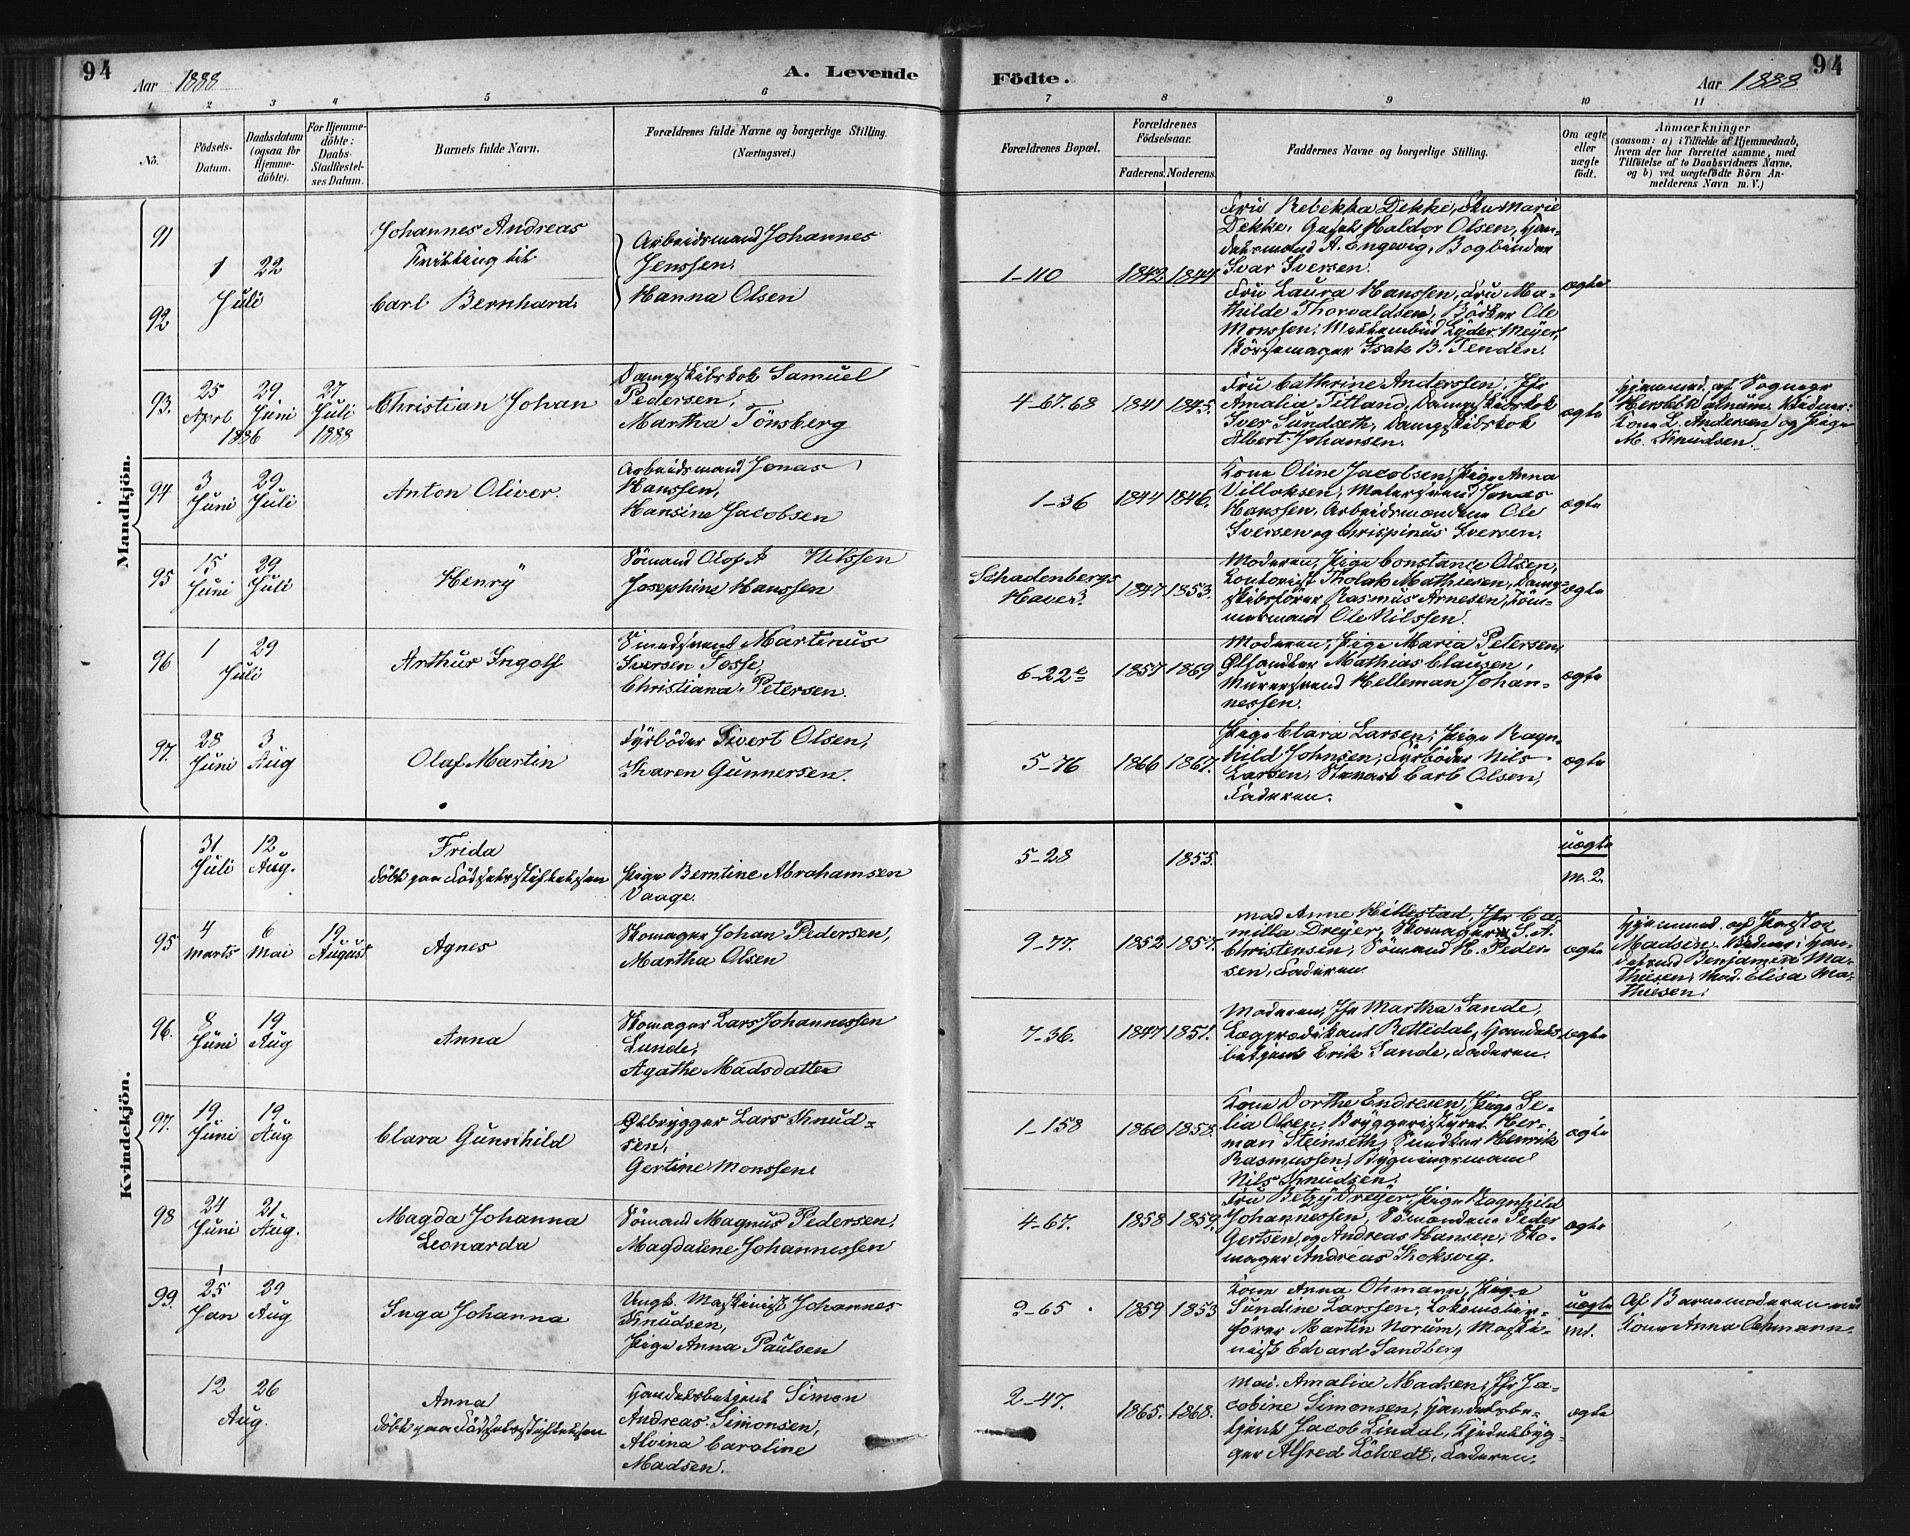 94
Aar 1888
A. Levende
Födte.
Aar 1888
94
1 2 3 4 5 6 7 8 9 10 11
No.
Födsels-
Datum.
Daabsdatum
(ogsaa för
Hjemme-
döbte).
For Hjemme-
döbte:
Daabs-
Stadfæstel-
ses Datum.
Barnets fulde Navn.
Forældrenes fulde Navne og borgerlige Stilling.
(Næringsvei.)
Forældrenes Bopæl.
Forældrenes
Födselsaar.
Faderens. Moderens.
Faddernes Navne og borgerlige Stilling.
Om ægte
eller
uægte
födt.
Anmærkninger
(saasom: a) i Tilfælde af Hjemmedaab,
hvem der har forrettet samme, med
Tilföielse af to Daabsvidners Navne,
og b) ved uægtefödte Börn An-
melderens Navn m. V.)
Mandkjön.
91
1 22
Juli
Johannes Andreas
Tvilling til
Arbeidsmand Johannes
Jenssen,
Hanna Olsen
1-110
1842 1844
Fru Rebekka Dekke, Fru Marie
Dekke, Haldor Olsen, Han-
delsmand A. Engevig, Bogbinder
Ivar Iversen.
ægte
92
Carl Bernhard
Fru Laura Hanssen, Fru Ma-
thilde Thorvaldsen, Bödker Ole
Monssen, Lyder Meyer,
Börstemager Isak B. Tenden.
93.
25 29 27
April Juni Juli
1886 1888
Christian Johan
Dampskibskok Samuel
Pedersen,
Martha Tönsberg
4-67.68
1841 1845.
Fru Cathrine Anderssen, Jfr
Amalia Titland, Dampskibskok
Iver Sundseth, Dampskibskok
Albert Johansen.
ægte
Hjemmed. af Sognepr
Vidner:
Kone L. Andersen og Pige
M. Knudsen.
94
3 29
Juni Juli
Anton Oliver.
Arbeidsmand Jonas
Hanssen,
Hansine Jacobsen
1-36
1844 1846.
Kone Oline Jacobsen, Pige Anna
Villoksen, Malersvend Jonas
Hanssen, Arbeidsmændene Ole
Iversen og Chrispinus Iversen.
ægte
95
15 29
Juni Juli
Henry
Sömand Olof A Nilssen
Josephine Hanssen
Schadenbergs
Have 3.
1847 1853.
Moderen, Pige Constance Olsen,
Kontorist Tholak Mathiesen, Damp-
skibsförer Rasmus Arnesen, Töm-
mermand Ole Nilssen.
ægte
96
1 29
Juli
Arthur Ingolf
Smedsvend Martinus
Iversen Fosse,
Christiana Petersen.
6-22c
1857 1869
Moderen, Pige Maria Petersen,
Mathias Clausen,
Murersvend Helleman Johan-
nessen.
ægte
97.
28 3
Juni Aug
Olaf Martin
Fyrböder Sivert Olsen,
Karen Gunnersen.
5-76
1866 1867.
Pige Clara Larsen, Pige Ragn-
hild Johnsen, Fyrböder Nils
Larsen, Stuvart Carl Olsen,
Faderen.
ægte
Kvindekjön.
31 12
Juli Aug.
Frida
döbt paa Födselsstiftelsen
Pige Berntine Abrahamsen
Vaage.
5-28
1855.
uægte
m. 2.
95
4 6 19
Marts Mai August
Agnes
Skomager Johan Pedersen,
Martha Olsen
9-77.
1852 1857.
Mad Anne Hillestad, Jfr Ca-
milla Dreyer, Skomager S. A.
Christensen, Sömand H. Peder-
sen, Faderen.
ægte
Hjemmed. af Pastor
Madsen. Vidner: Han-
delsmd Benjamin Ma-
thiesen, Mad. Elisa Ma-
thiesen.
96.
8 19
Juni Aug
Anna
Skomager Lars Johannessen
Lunde,
Agathe Madsdatter
7-36.
1847 1851.
Moderen, Jfr Martha Sande,
Lægprædikant Rettedal, Handels-
betjent Erik Sande, Faderen.
ægte
97.
19 19
Juni Aug
Clara Gunschild
Ølbrygger Lars Knud-
sen,
Gertine Monssen
1-158
1860 1858.
Kone Dorthe Endresen, Pige Se-
lia Olsen, Bryggeristyrer Her-
man Steinseth, Snedker Henrik
Rasmussen, Bygningsmand
Nils Knudsen.
ægte
98
24 21
Juni Aug.
Magda Johanna
Leonarda
Sömand Magnus Pedersen,
Magdalene Johannessen
4-67.
1858 1859.
Fru Betzy Dreyer, Pige Ragnhild
Johannessen, Sömændene Peder
Gertsen og Andreas Hansen, Sko-
mager Andreas Thoksvig.
ægte
99.
25 29
Jan Aug
Inga Johanna
Ungk. Maskinist Johannes
Knudsen,
Pige Anna Paulsen
2-65
1859 1853
Kone Anna Ohmann, Pige
Sundine Larssen, Lokomotiv-
förer Martin Norum, Maski-
nist Edvard Sandberg
uægte
m1.
Af Barnemoderen
Kone Anna Ohmann.
12 26
Aug.
Anna
döbt paa Födselsstiftelsen
Handelsbetjent Simon
Andreas Simonsen,
Alvina Caroline
Madsen.
2-47.
1865. 1868.
Mad. Amalia Madsen, Jfr Ja-
cobine Simonsen, Handelsbe-
tjent Jacob Lindal,
Alfred Lövedt, Faderen.
ægte